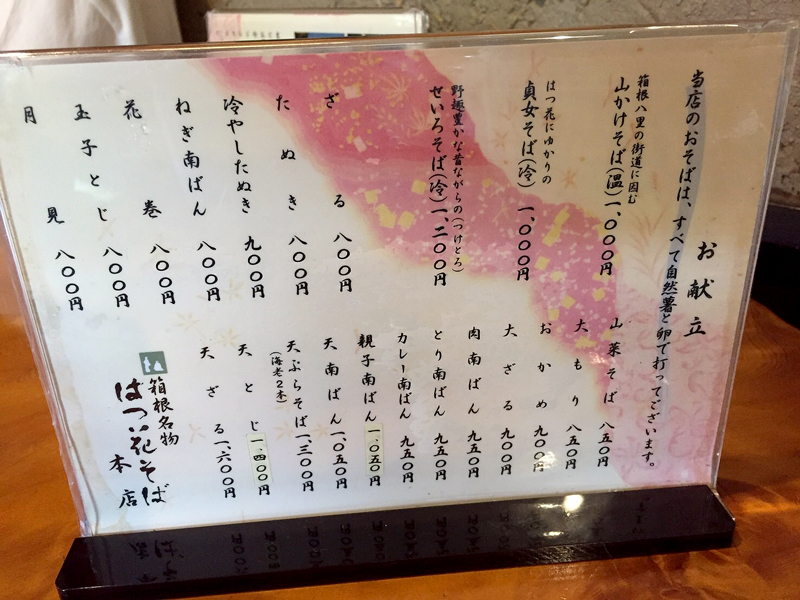 お献立
当店のおそばは、すべて自然薯と卵で打ってございます。
箱根八里の街道に因む
山かけそば(温)一、〇〇〇円
はつ花にゆかりの
貞女そば(冷)一、〇〇〇円
野趣豊かな昔ながらの(つけとろ)
せいろそば(冷)一、二〇〇円
ざる 八〇〇円
たぬき 八〇〇円
冷やしたぬき 九〇〇円
ねぎ南ばん 八〇〇円
花巻 八〇〇円
玉子とじ 八〇〇円
月見 八〇〇円
山菜そば 八五〇円
大もり 八五〇円
おかめ 九〇〇円
大ざる 九〇〇円
肉南ばん 九五〇円
とり南ばん 九五〇円
カレー南ばん 九五〇円
親子南ばん 一、〇五〇円
天南ばん 一、〇五〇円
天ぷらそば 一、三〇〇円
(海老2本)
天とじ 一、四〇〇円
天ざる 一、六〇〇円
箱根名物
はつ花そば
本店